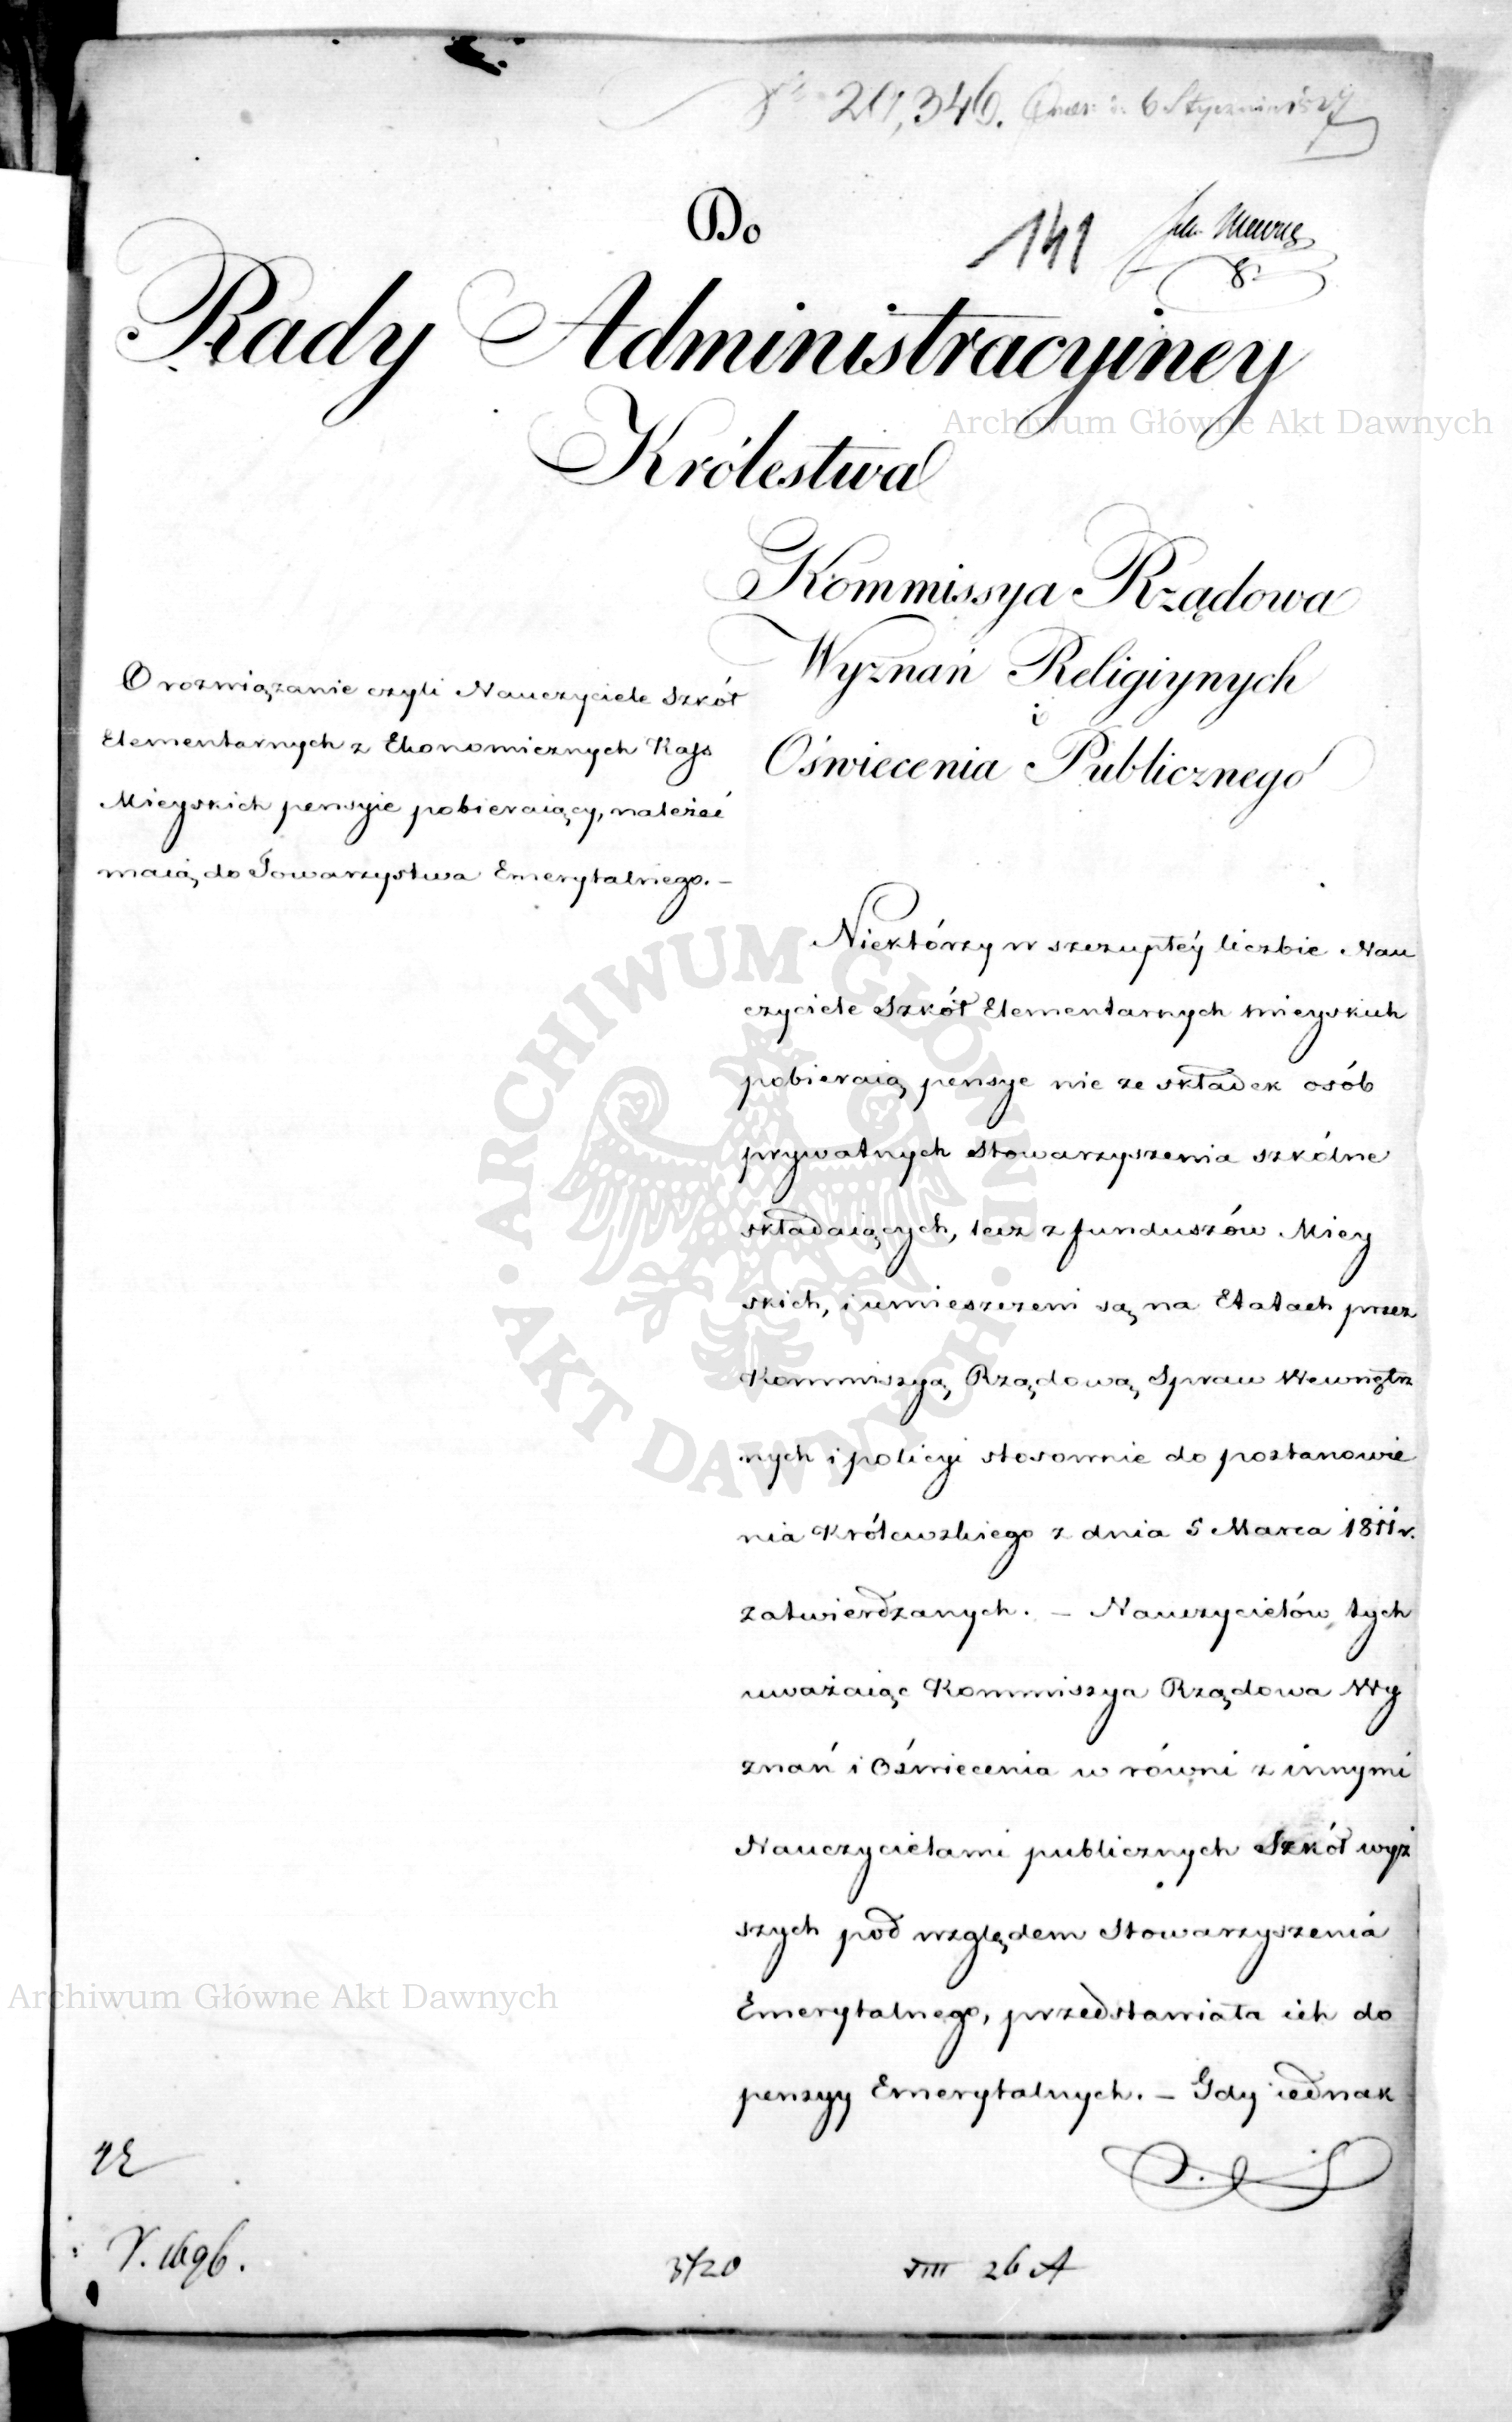 20,346. 6 Stycznia 1827
Do
141
Rady Administracyiney
Królestwa
Kommissya Rządowa
Wyznań Religiynych
i
Oświecenia Publicznego
O rozwiązanie czyli Nauczyciele Szkół
Elementarnych z Ekonomicznych Kass
Mieyskich pensyie pobieraiący, należeć
maią do Towarzystwa Emerytalnego. –
Niektórzy w szczupłéy liczbie Nau
czyciele Szkół Elementarnych mieyskich
pobieraią pensye nie ze składek osób
prywatnych Stowarzyszenia szkólne
składaiących, lecz z funduszów Miey
skich, i umieszczeni są na Etatach przez
Kommissyą Rządową Spraw Wewnętrz
nych i policyi stosownie do postanowie
nia Królewskiego z dnia 5 Marca 1811 r.
zatwierdzanych. – Nauczycielów tych
uważaiąc Kommissya Rządowa Wy
znań i Oświecenia w równi z innymi
Nauczycielami publicznych Szkół wyż
szych pod względem Stowarzyszenia
Emerytalnego, przedstawiała ich do
pensyy Emerytalnych. – Gdy iednak
V. 1696.
3/20
VIII 26 A
Archiwum Główne Akt Dawnych
ARCHIWUM GŁÓWNE
AKT DAWNYCH
Archiwum Główne Akt Dawnych